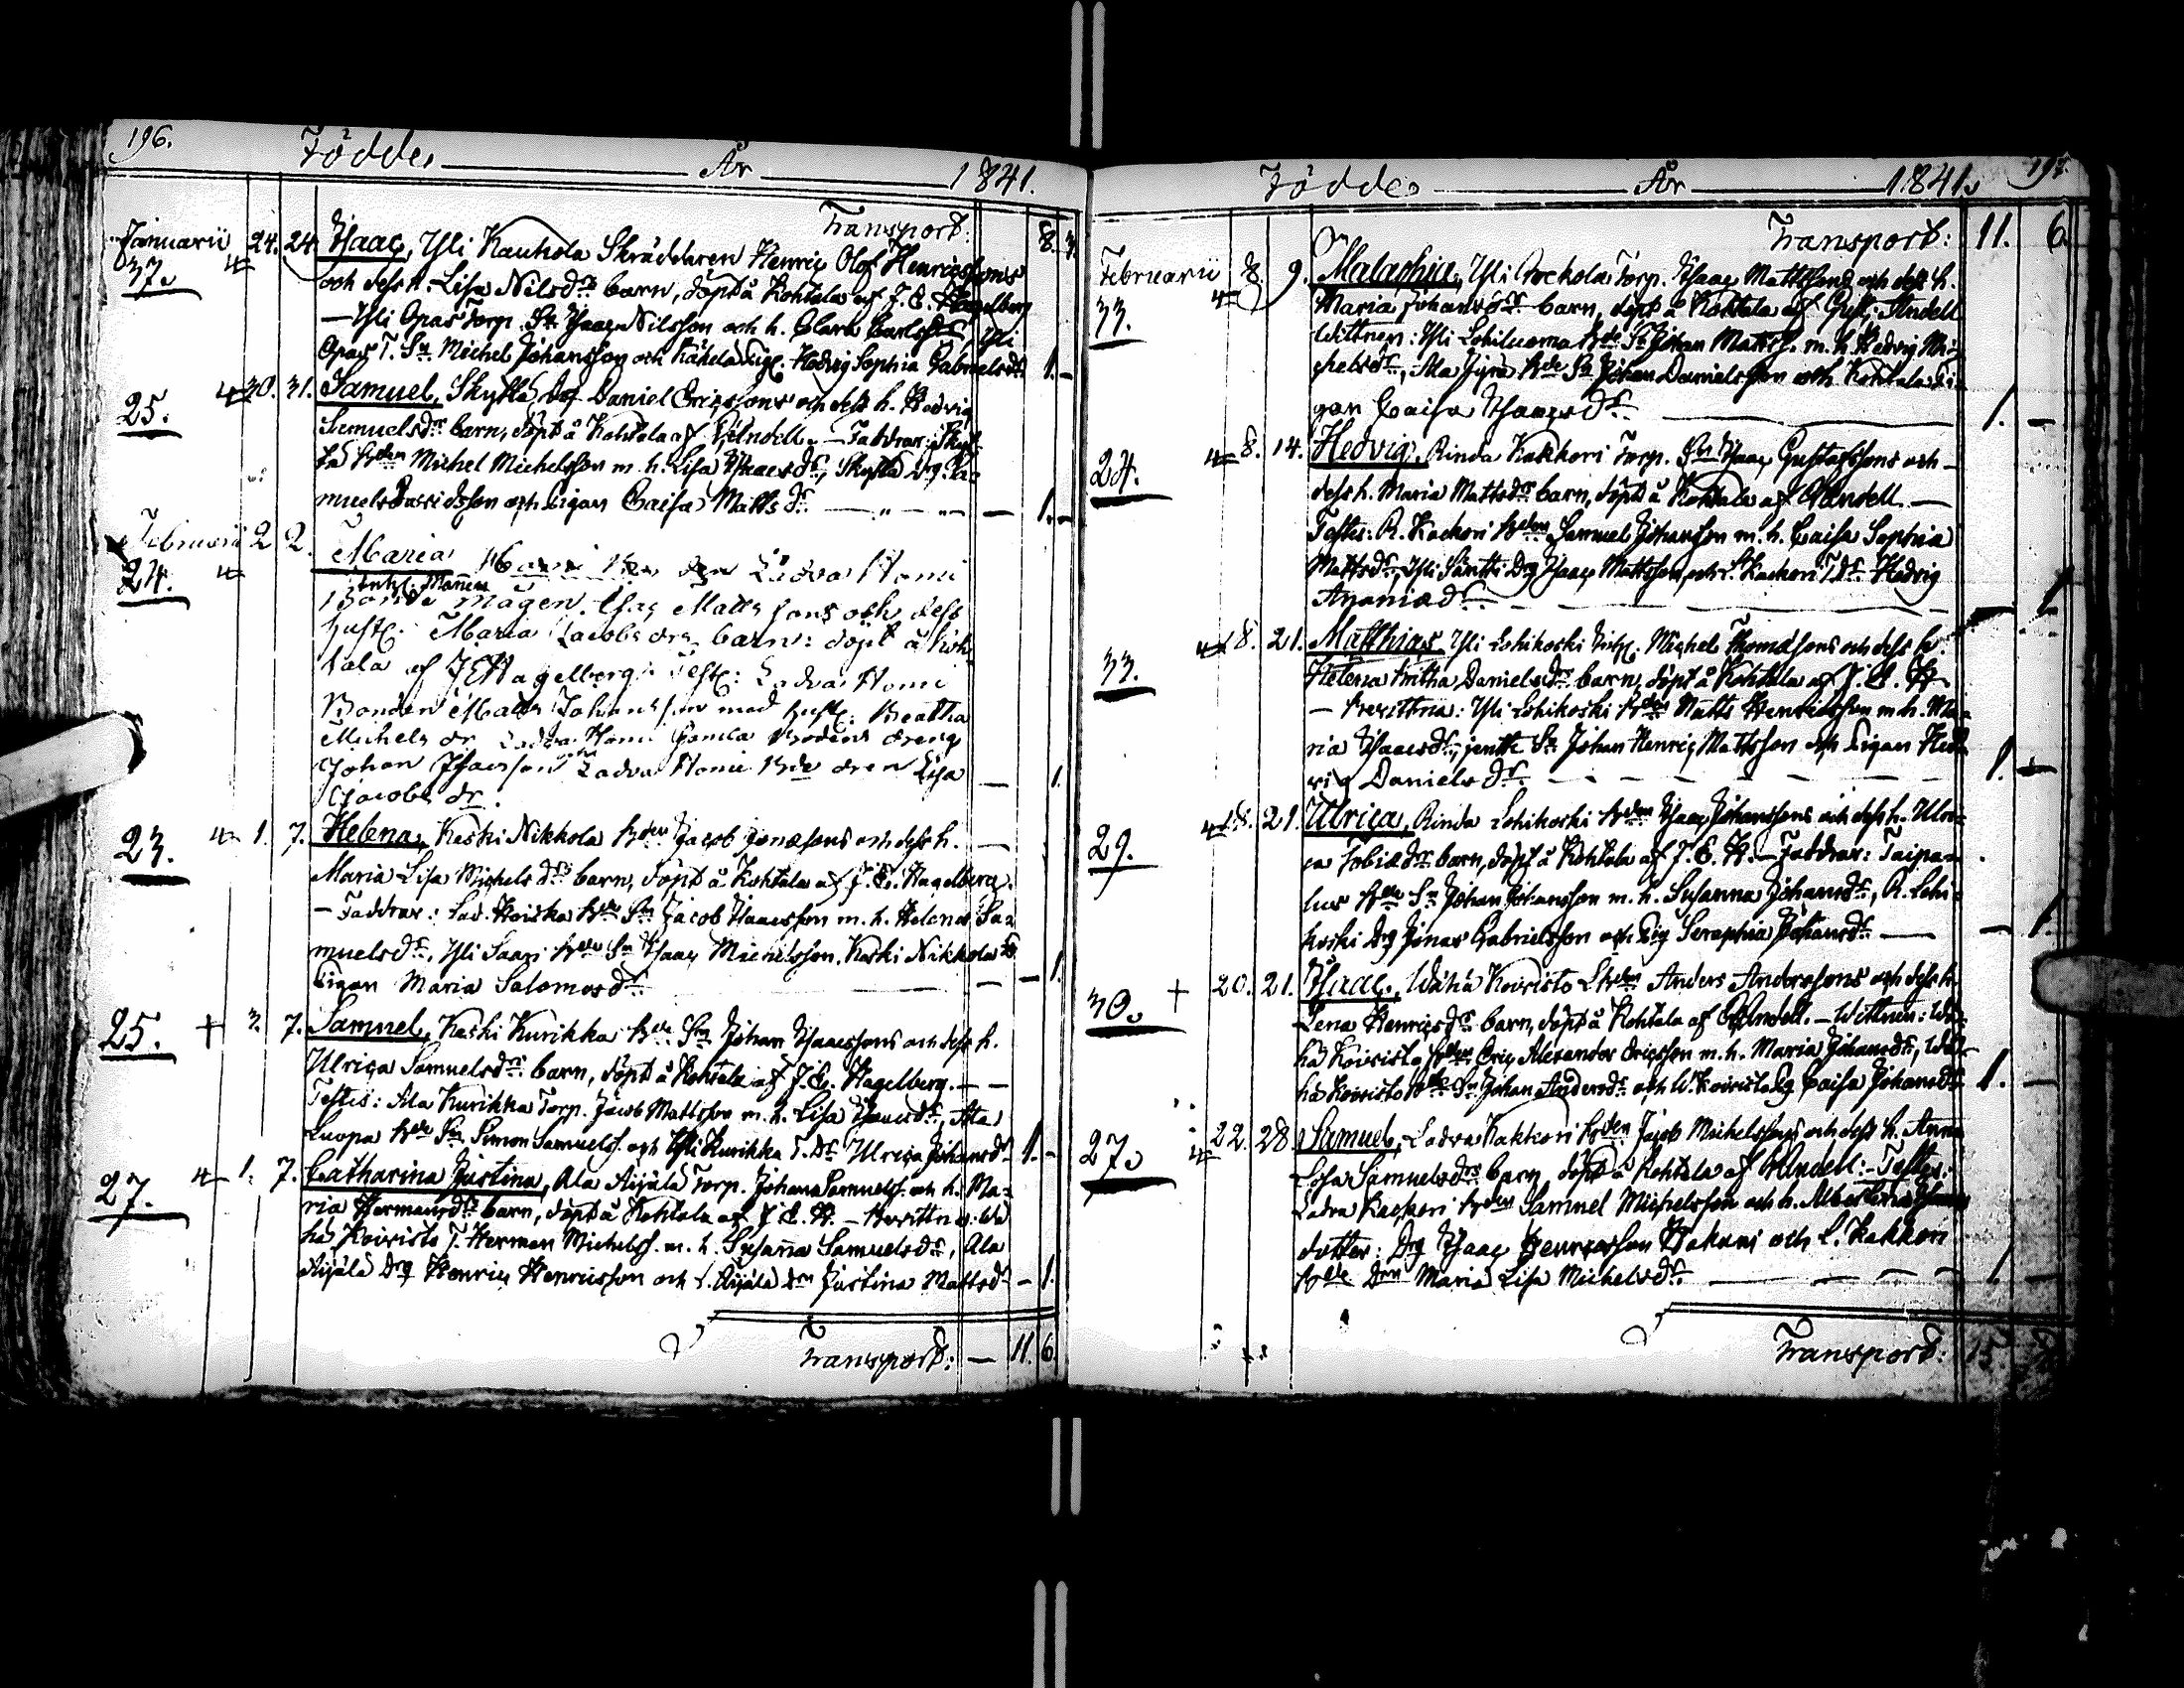 196.
Föddes År 1841.
Transport: 8. 3.
Januarii 24. 24. Isaac, Yli Kauhola Skräddaren Henric Olof Henricssons
37. och dess h. Lisa Nilsdr barn, döpt å Kohtala af J. E. Hagelberg
— Yli Opas Torp. Sn Isaac Nilsson och h. Clara Carlsdr Yli
Opas T. Sn Michel Johansson och Pig. Hedvig Sophia Gabrielsdr 1. —
25. 30. 31. Samuel, Skyttä Drg Daniel Ericssons och dess h. Hedvig
Samuelsdrs barn, döpt å Kohtala af Andell. — Faddrar: Skyt-
tä Bden Michel Michelsson m. h. Lisa Isaacsdr, Skyttä Drg. Sa-
muel Davidsson och Pigan Caisa Mattsdr — 1. —
Februarii 2 2. Maria Ladva Homi
24. Inhs. Manin
Bonde mågen Isac Matts sons och dess
hust: Maria Jacobs drs barn: döpt å Koh-
tala af J E Hagelberg: Test: Ladva Homi
Bonden Matts Johansson med hust: Beatha
Michels dr Ladva Homi Gamla Bodens dreng
Johan Isacsson Ladva Homi Bde dren Lisa
Jacobs dr. — 1.
23. 1. 7. Helena, Keski Nikkola Bden Jacob Jonæsons och dess h. —
Maria Lisa Michelsdrs barn, döpt å Kohtala af J. E. Hagelberg.
— Faddrar: Lad. Koiska Bde Sn Jacob Isaacsson m. h. Helena Sa-
muelsdr, Yli Saari Bde Sn Isaac Michelsson, Keski Nikkola
Pigan Maria Salomosdr — 1.
25. + 3. 7. Samuel, Keski Kurikka Bde Sn Johan Isaacssons och dess h.
Ulrica Samuelsdrs barn, döpt å Kohtala af J. E. Hagelberg. — —
Testes: Ala Kurikka Torp. Jacob Mattsson m. h. Lisa Isaacsdr, Ala
Luopa Bde Sn Simon Samuelss. och Yli Kurikka T. Dr Ulrica Johansdr 1. —
27. 1. 7. Catharina Justina, Ala Äijälä Torp. Johan Samuelss. och h. Ma-
ria Hermansdrs barn, döpt å Kohtala af J. E. H. — Wä-
hä Koivisto T. Herman Michelss. m. h. Susanna Samuelsdr, Ala
Äijälä Drg Henric Henricsson och Äijälä Drn Justina Mattsdr — 1.
Transport: — 11. 6.
197.
Föddes År 1841.
Transport: 11. 6.
Februarii 8. 9. Malachia, Yli Torp. Isaac Mattssons och dess h.
33. Maria Johansdrs barn, döpt å Kohtala af Gust: Andell
Wittnen: Yli Lohiluoma Bde Sn Johan Mattss. m. h. Hedvig Mi-
chelsdr, Ala Jyrä Bde Sn Johan Danielsson och Kohtala Pi-
gan Caisa Isaacsdr. — 1. —
24. 8. 14. Hedvig, Rinda Kakkori Torp. Sn Isaac Gustafssons och —
dess h. Maria Mattsdrs barn, döpt å Kohtala af Andell. —
Testes: R. Kackori Bden Samuel Johansson m. h. Caisa Sophia
Mattsdr, Yli Säntti Drg Isaac Mattsson och Kackori T Dr Hedvig
Ananiædr. — 1.
33. 18. 21. Matthias, Yli Lohikoski Inhs. Michel Thomæsons och dess h.
Helena Britha Danielsdrs barn, döpt å Kohtala af J. E. H.
— Yli Lohikoski Bden Matts Henricsson m. h. Ma-
ria Isaacsdr, Sn Johan Henric Mattsson och Pigan Hed-
vig Danielsdr. — 1. —
29. 18. 21. Ulrica, Rinda Lohikoski Bden Isaac Johanssons och dess h. Ulri-
ca Tobiædrs barn, döpt å Kohtala af J. E. H. — Faddrar: Taipa-
lus Bde Sn Johan Johansson m. h. Susanna Johansdr, R. Lohi-
koski Drg Jonas Gabrielsson och Pig Seraphia Johansdr — 1.
30. + 20. 21. Isaac, Wähä Koivisto Anders Anderssons och dess h.
Lena Henricsdrs barn, döpt å Kohtala af Andell. — Wittnen: Wä-
hä Koivisto Bden Eric Alexander Ericsson m. h. Maria Johansdr, Wä-
hä Koivisto Bde Sn Johan Andersson och W. Koivisto Pig Caisa Johansdr 1. —
27. 22. 28. Samuel, Ladva Kakkori Bden Jacob Michelssons och dess h. Anna
Lisa Samuelsdrs barn, döpt å Kohtala af Andell: — Testes:
Ladva Kackori Bden Samuel Michelsson och h. Albertina
dotter: Drg Isaac Henricsson Hakuni och L. Kakkori
Bde Drn Maria Lisa Michelsdr. — 1. —
Transport: 15